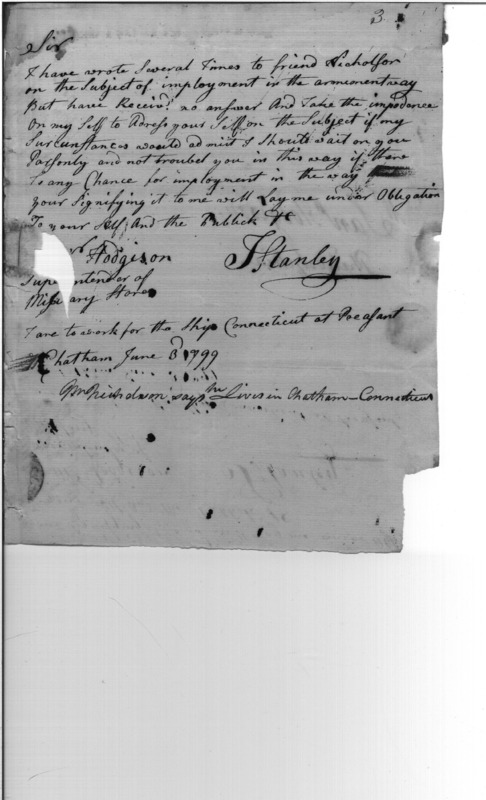 3
Sir
I have wrote Several Times to friend Nicholson
on the Subject of imployment in the armement way
But have Receivd no answer And Take the impedance
On my Self to Adress your Self on the Subject if my
Surcunstances would admit I Should wait on you
Parsonly and not troubel you in this way if there
is any Chance for imployment in the way
your Signifying it to me will Lay me under Obligation
To your Self And the Publick &c
Hodgison
J Stanley
Superintender of
Military Stores
I are to work for the Ship Connecticut at Preasant
Chatham June 3d 1799
Mr Nicholson says he Lives in Chatham - Connecticut